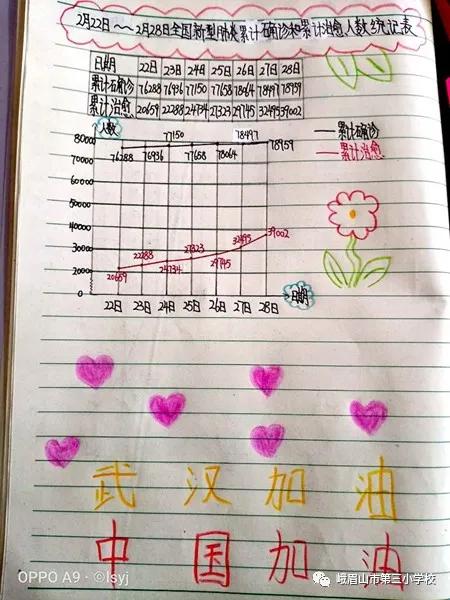 2月22日~2月28日全国新型肺炎累计确诊和累计治愈人数统记表
日期 22日 23日 24日 25日 26日 27日 28日
累计确诊 76288 76936 77150 77658 78064 78497 78959
累计治愈 20659 22288 24734 27323 29745 32495 39002
人数
77150 78497
80000
76288 76936 77658 78064 78959
70000
60000
50000
40000
30000
20000
0
22288 27323 32495 39002
20659 24734 29745
22日 23日 24日 25日 26日 27日 28日
日期
累计确诊
累计治愈
武汉加油
中国加油
OPPO A9 · ©lsyj
峨眉山市第三小学校